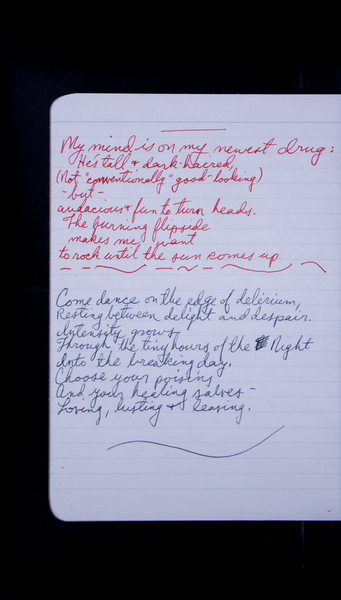 My mind is on my newest drug:
He's tall + dark-haired,
(Not "conventionally" good-looking)
- but -
audacious + fun to turn heads.
The burning flipside
makes me want
to rock until the sun comes up.
Come dance on the edge of delirium,
Resting between delight and despair.
Intensity grows
Through the tiny hours of the Night
Into the breaking day.
Choose your poisins
And your healing salves -
Loving, lusting + leaving.